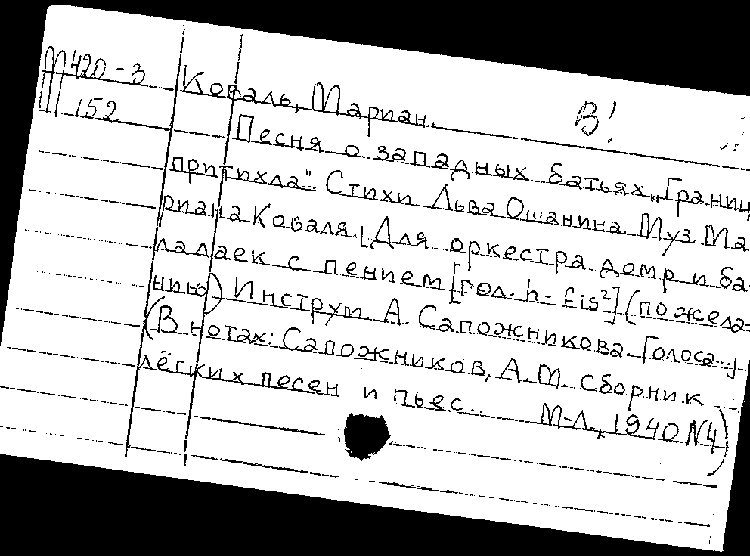 М420-3 Коваль, Мариан. В!
III 152
Песня о западных батьях „Границ
притихла". Стихи Льва Ошанина. Муз. Ма-
риана Коваля. [Для оркестра домр и ба-
лалаек с пением [гол. h - fis²] (по жела-
нию) Инструм. А. Сапожникова. Голоса...]
(В нотах: Сапожников, А.М. Сборник
лёгких песен и пьес... М-Л., 1940 №4)